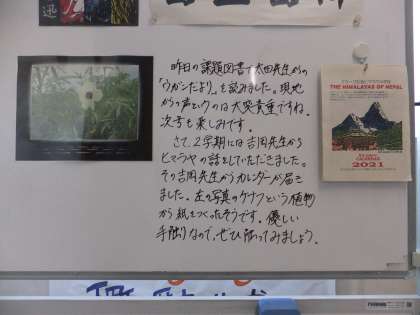 迅
昨日の課題図書で太田先生からの
「ウガンだより」を読みました。現地
からの声というのは大変貴重ですね。
次号も楽しみです。
さて、2学期には吉岡先生から
ヒマラヤの話をしていただきました。
その吉岡先生からカレンダーが届き
ました。左の写真のケナフという植物
から紙をつくったそうです。優しい
手触りなので、ぜひ触ってみましょう。
THE HIMALAYAS OF NEPAL
CALENDAR
2021